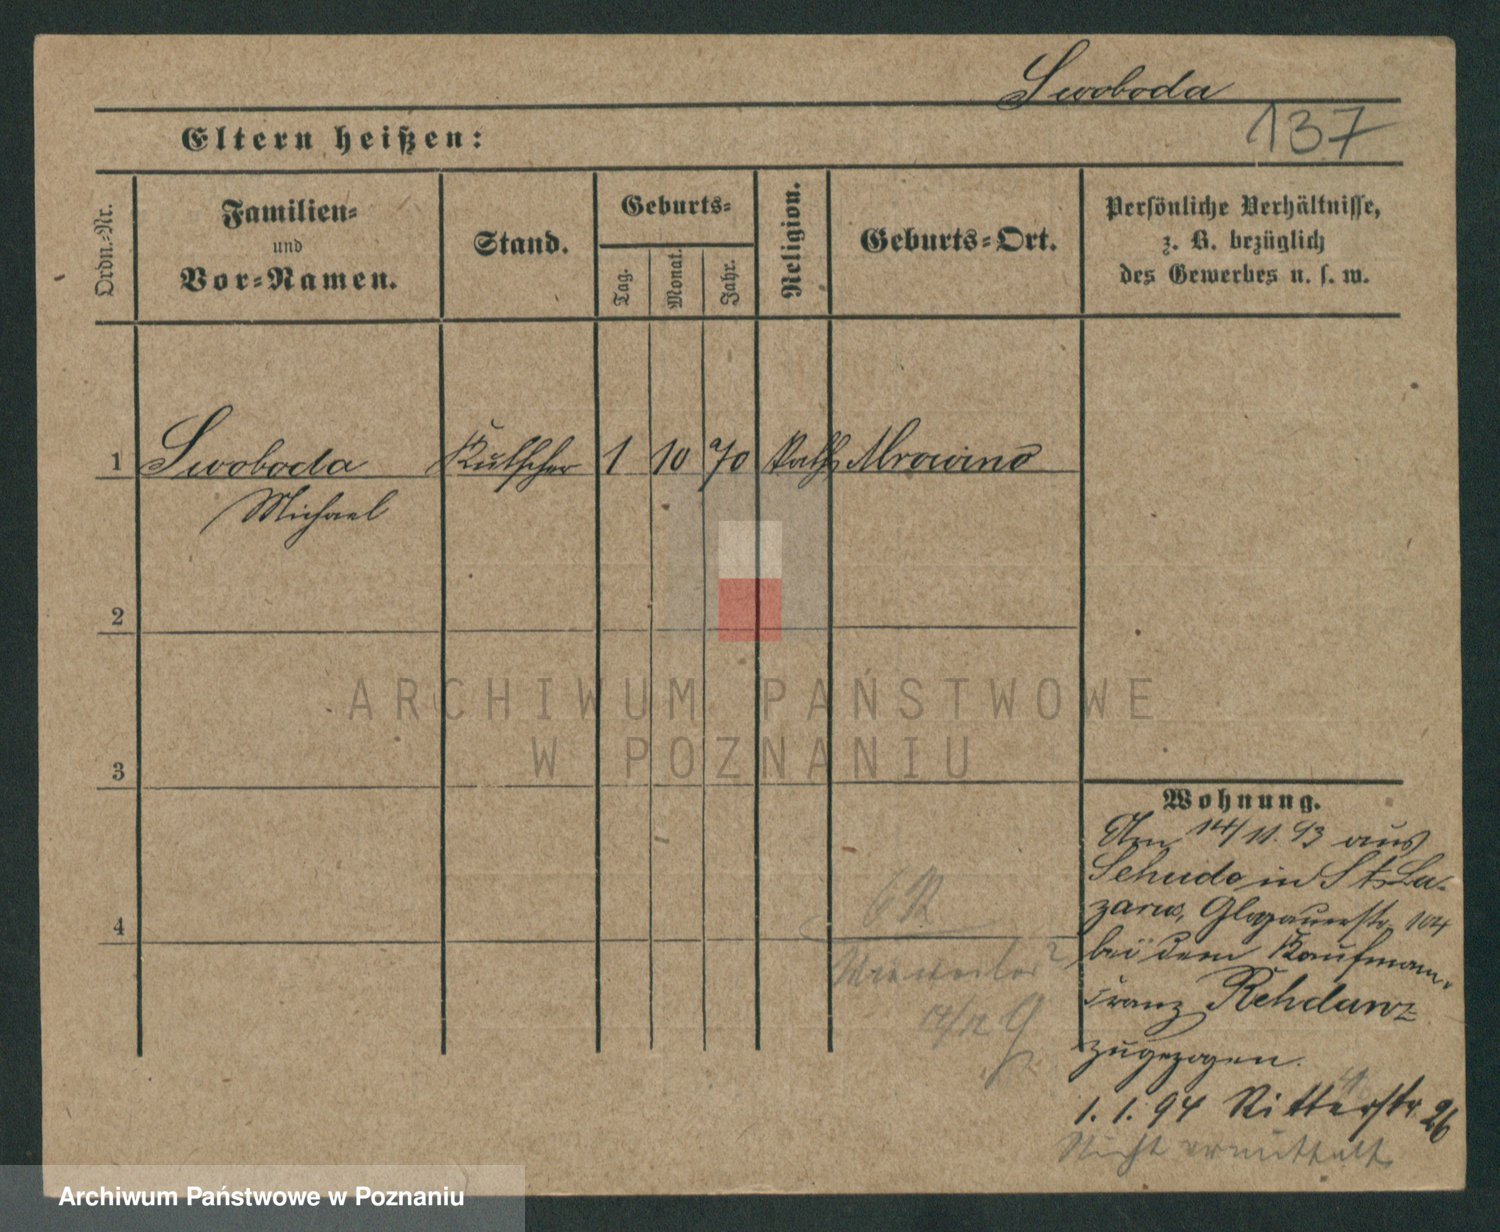 Swoboda
137
Eltern heißen:
Ordn.-Nr.
Familien-
und
Vor-Namen.
Stand.
Geburts-
Tag.
Monat.
Jahr.
Religion.
Geburts-Ort.
Persönliche Verhältnisse,
z. B. bezüglich
des Gewerbes u. s. w.
1 Swoboda Kutscher 1 10 70 Kath Mrowino
Michael
2
ARCHIWUM PAŃSTWOWE
W POZNANIU
3
4
Wohnung.
Am 14/11. 93 aus
Sehudo in St. La-
zarus, Glogauerstr. 104
bei dem Kaufmann
Franz Rehdanz
zugezogen.
1. 1. 94 Ritterstr 26
Nicht ermittelt
Archiwum Państwowe w Poznaniu